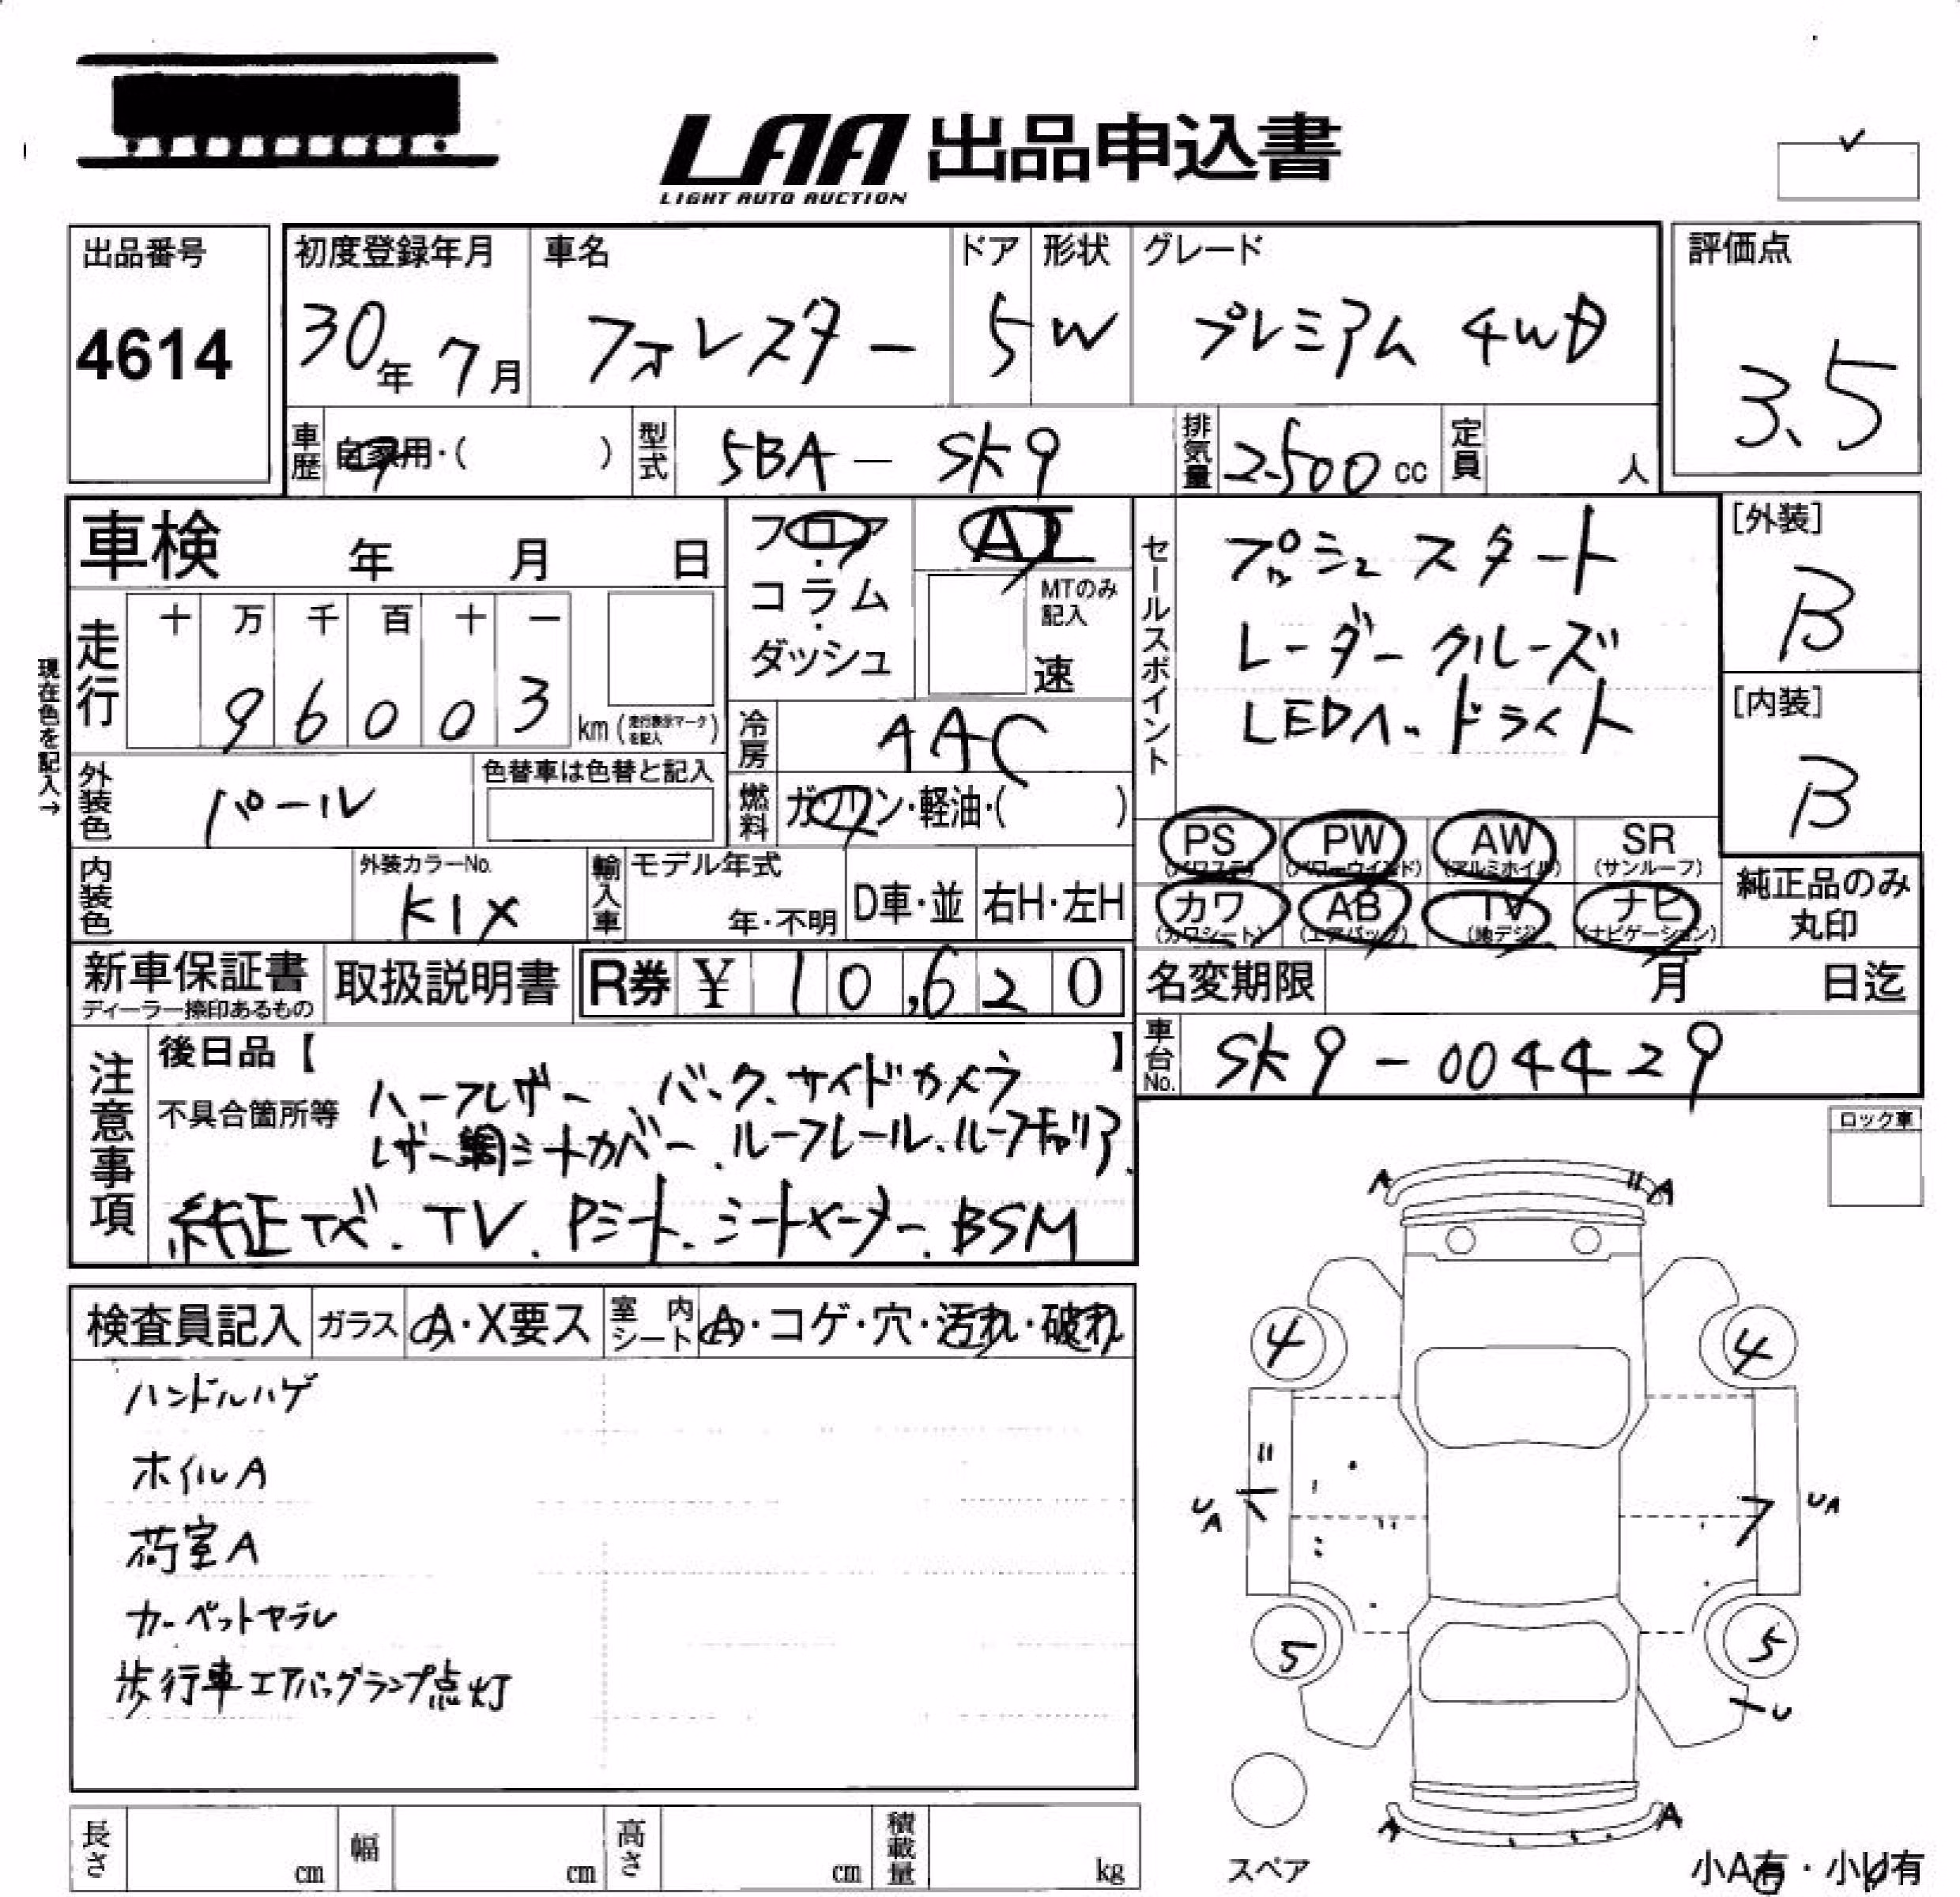 LAA 出品申込書
LIGHT AUTO AUCTION
出品番号
4614
初度登録年月
30年 7月
車名
フォレスター
ドア
5
形状
W
グレード
プレミアム 4WD
評価点
3.5
車歴
自家用・( )
型式
5BA - SK9
排気量
2500 cc
定員
人
車検 年 月 日
フロア・コラム・ダッシュ
AT
MTのみ記入
速
セールスポイント
プッシュスタート
レーダークルーズ
LEDヘッドライト
[外装]
B
[内装]
B
現在色を記入→
走行
十 万 千 百 十 一
9 6 0 0 3
km (走行表示マークを記入)
冷房
AAC
外装色
パール
色替車は色替と記入
燃料
ガソリン・軽油・( )
PS (パワステ)
PW (パワーウインド)
AW (アルミホイル)
SR (サンルーフ)
カワ (カワシート)
AB (エアバック)
TV (地デジ)
ナビ (ナビゲーション)
純正品のみ丸印
内装色
外装カラーNo.
K1X
輸入車
モデル年式
年・不明
D車・並
右H・左H
新車保証書
ディーラー捺印あるもの
取扱説明書
R券 ¥ 10,620
名変期限 月 日迄
車台No.
SK9-004429
注意事項
後日品【 】
不具合箇所等
ハーフレザー バック、サイドカメラ
レザー調シートカバー、ルーフレール、ルーフキャリア、
純正ナビ、TV、Pシート、シートメモリー、BSM
ロック車
検査員記入
ガラス
A・X要ス
室内シート
A・コゲ・穴・汚れ・破れ
ハンドルハゲ
ホイルA
荷室A
カーペットヤブレ
歩行車エアバッグランプ点灯
A A
4 4
UA UA
5 5
U
A A
スペア
小A有・小U有
長さ cm
幅 cm
高さ cm
積載量 kg